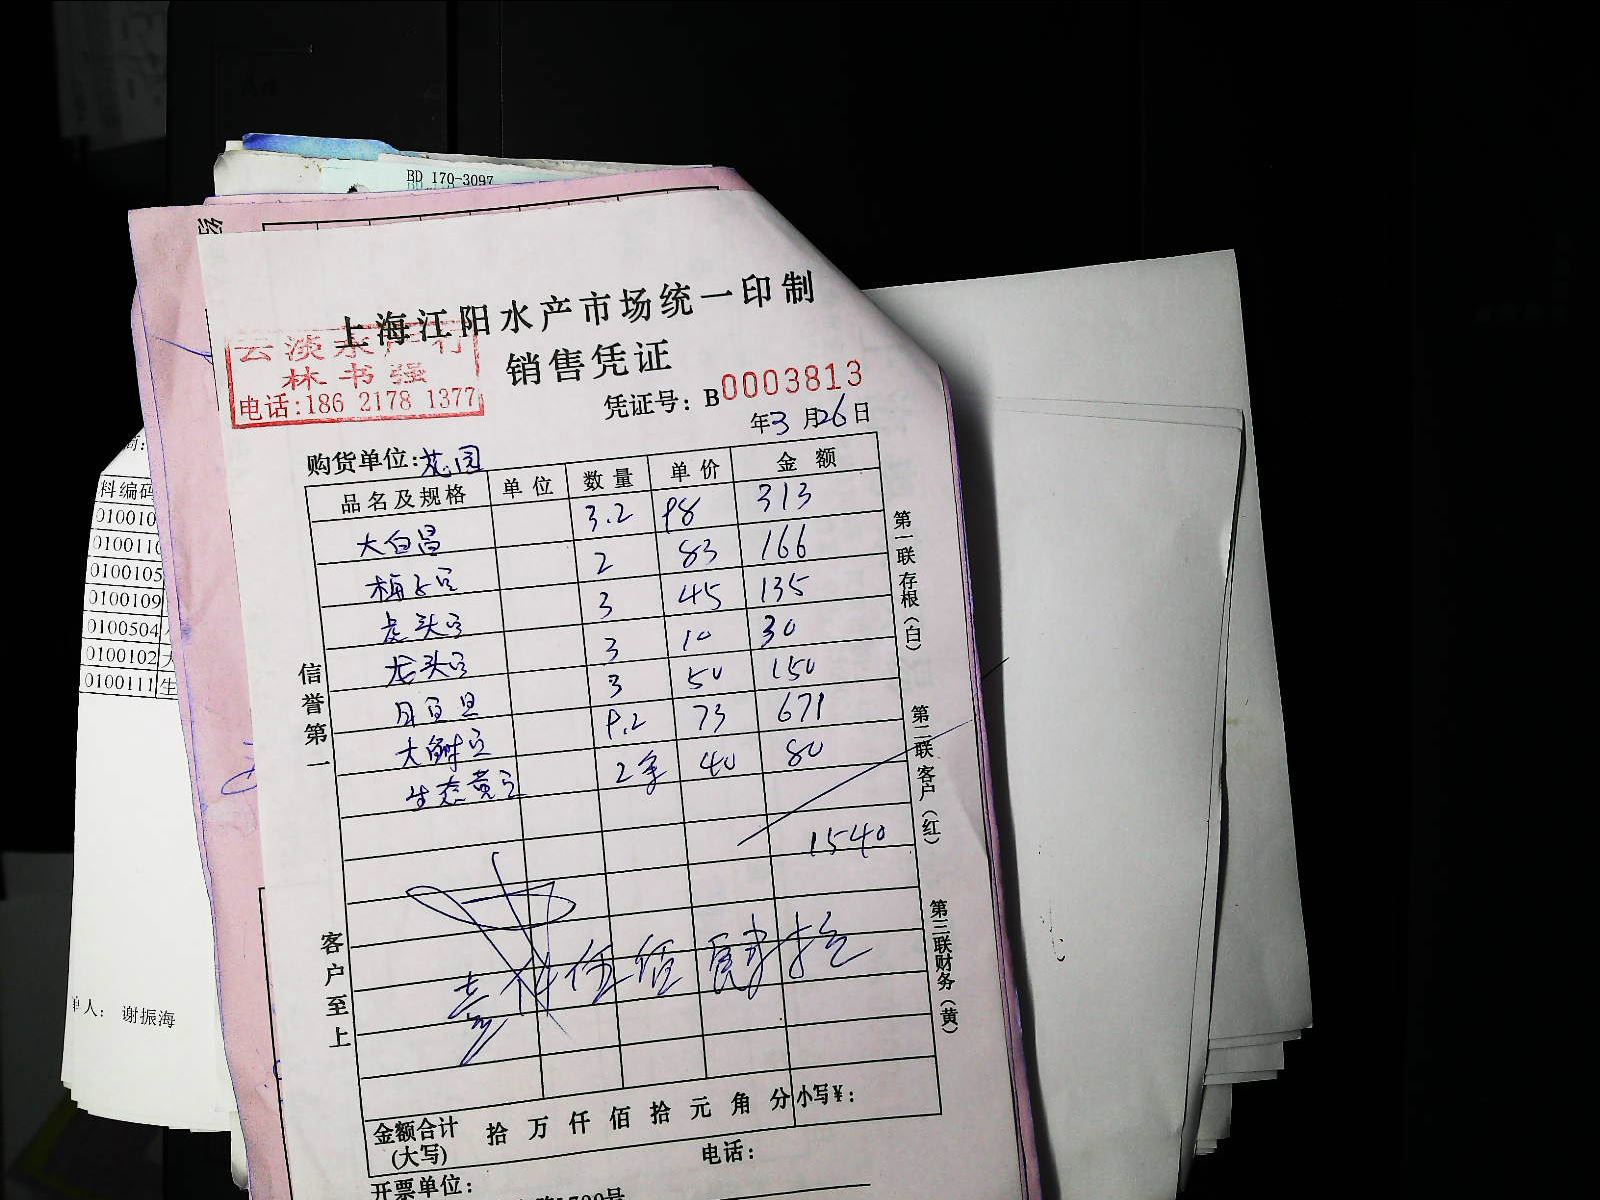 BD 170-3097
上海江阳水产市场统一印制
云淡水产行
林书强
电话:186 2178 1377
销售凭证
凭证号: B0003813
年3月26日
购货单位:花园
品名及规格 单位 数量 单价 金额
大白昌 3.2 98 313
梅子 2 83 166
虎头 3 45 135
龙头 3 10 30
3 50 150
大 9.2 73 671
生态黄 2 40 80
1540
壹仟伍佰肆拾
信誉第一
客户至上
第一联存根(白)
第二联客户(红)
第三联财务(黄)
金额合计(大写) 拾万仟佰拾元角分 小写¥:
电话:
开票单位:
料编码
010010
010011
0100105
0100109
0100504
0100102
0100111 生
单人: 谢振海